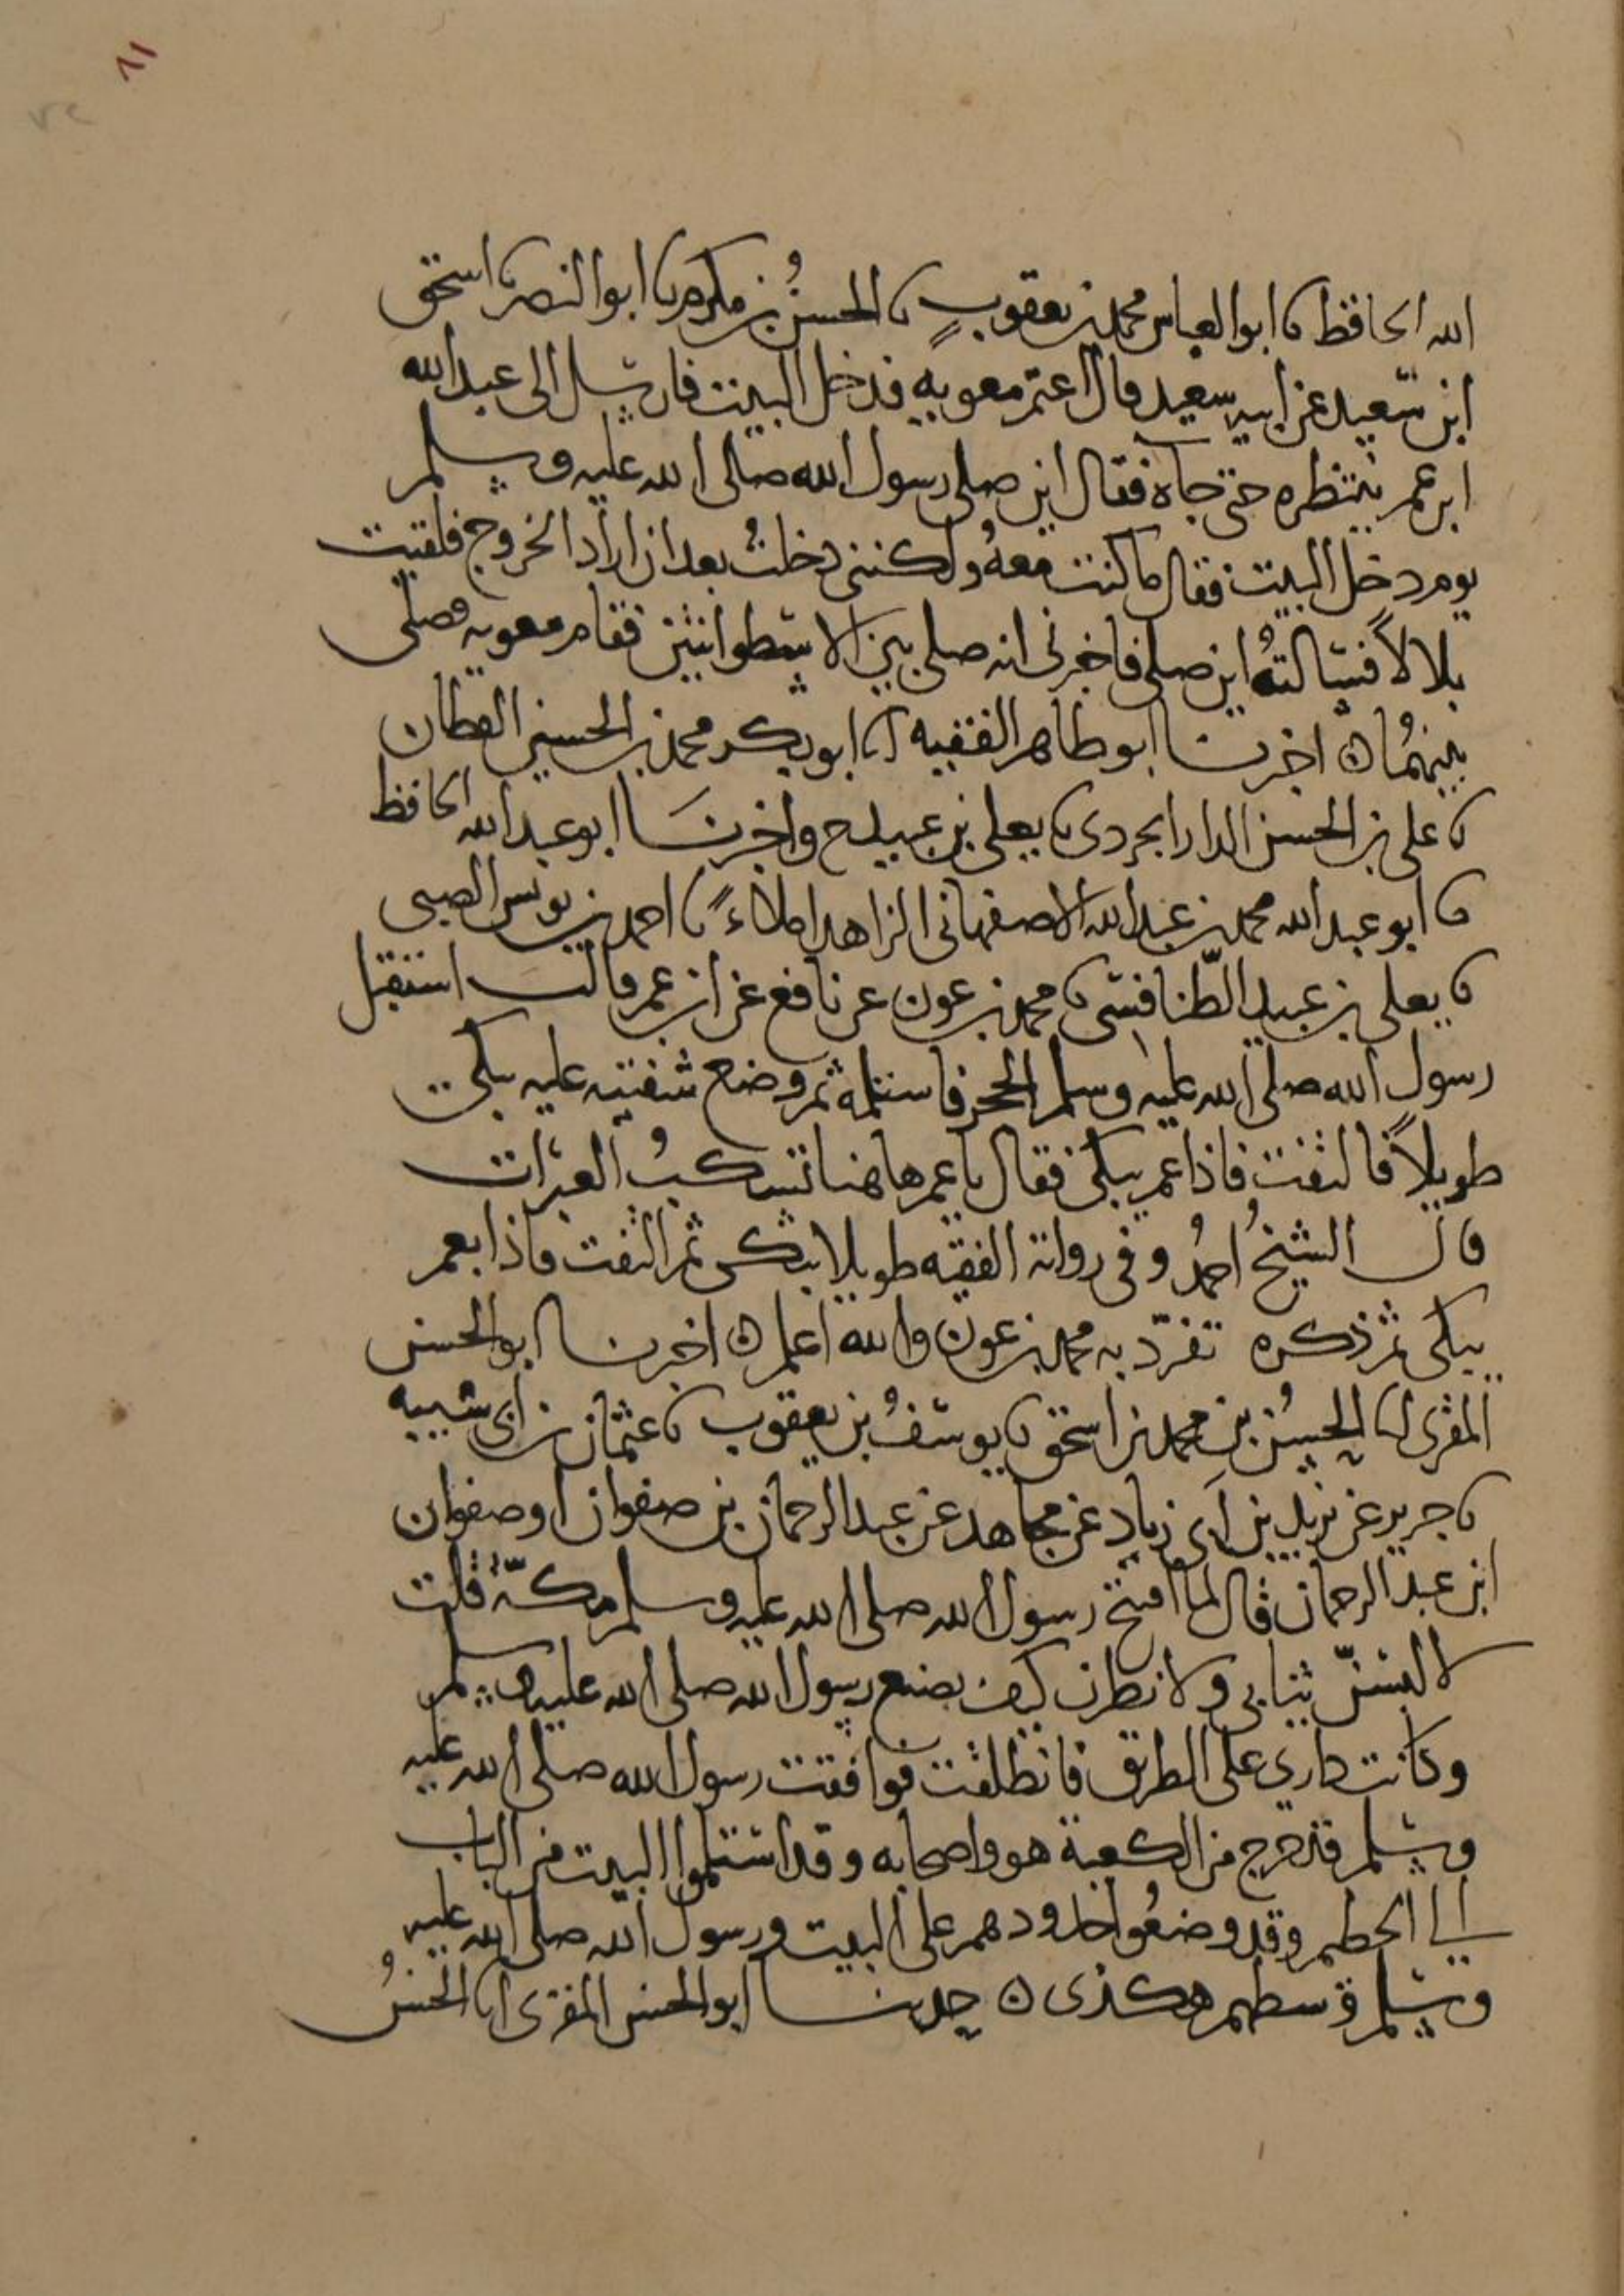 ٨١
٧٢
الله الحافظ نا ابو العباس محمد بن يعقوب نا الحسن بن مكرم نا ابو النصر نا اسحق
ابن سعيد عن ابيه سعيد قال اعتمر معويه فدخل البيت فارسل الى عبد الله
ابن عمر ينتظره حتى جاه فقال اين صلى رسول الله صلى الله عليه وسلم
يوم دخل البيت فقال ما كنت معه ولكنى دخلت بعد ان اراد الخروج فلقيت
بلالاً فسالته اين صلى فاخبرنى انه صلى بين الاسطوانتين فقام معويه فصلى
بينهما ه اخبرنا ابو طاهر الفقيه انا ابو بكر محمد بن الحسين القطان
نا على بن الحسن الدارابجردى نا يعلى بن عبيد ح واخبرنا ابو عبد الله الحافظ
نا ابو عبد الله محمد بن عبد الله الاصفهانى الزاهد املاءً نا احمد بن يونس الضبى
نا يعلى بن عبيد الطّنافسى نا محمد بن عون عن نافع عن ابن عمر قال استقبل
رسول الله صلى الله عليه وسلم الحجر فاستلمه ثم وضع شفتيه عليه يبكى
طويلاً فالتفت فاذا عمر يبكى فقال يا عمر هاهنا تسكب العبرات
قال الشيخ احمد وفى رواية الفقيه طويلا يبكى ثم التفت فاذا بعمر
يبكى ثم ذكره تفرّد به محمد بن عون والله اعلم ه اخبرنا ابو الحسن
المقرى انا الحسن بن محمد بن اسحق نا يوسف بن يعقوب نا عثمان بن ابى شيبه
نا جرير عن يزيد بن ابى زياد عن مجاهد عن عبد الرحمان بن صفوان او صفوان
ابن عبد الرحمان قال لما افتتح رسول الله صلى الله عليه وسلم مكّة قلت
لالبسنّ ثيابى ولانظرن كيف يصنع رسول الله صلى الله عليه وسلم
وكانت دارى على الطريق فانطلقت فوافقت رسول الله صلى الله عليه
وسلم قد خرج من الكعبة هو واصحابه وقد استلموا البيت من الباب
الى الحطيم وقد وضعوا خدودهم على البيت ورسول الله صلى الله عليه
وسلم وسطهم هكذى ه حدثنا ابو الحسن المقرى انا الحسن